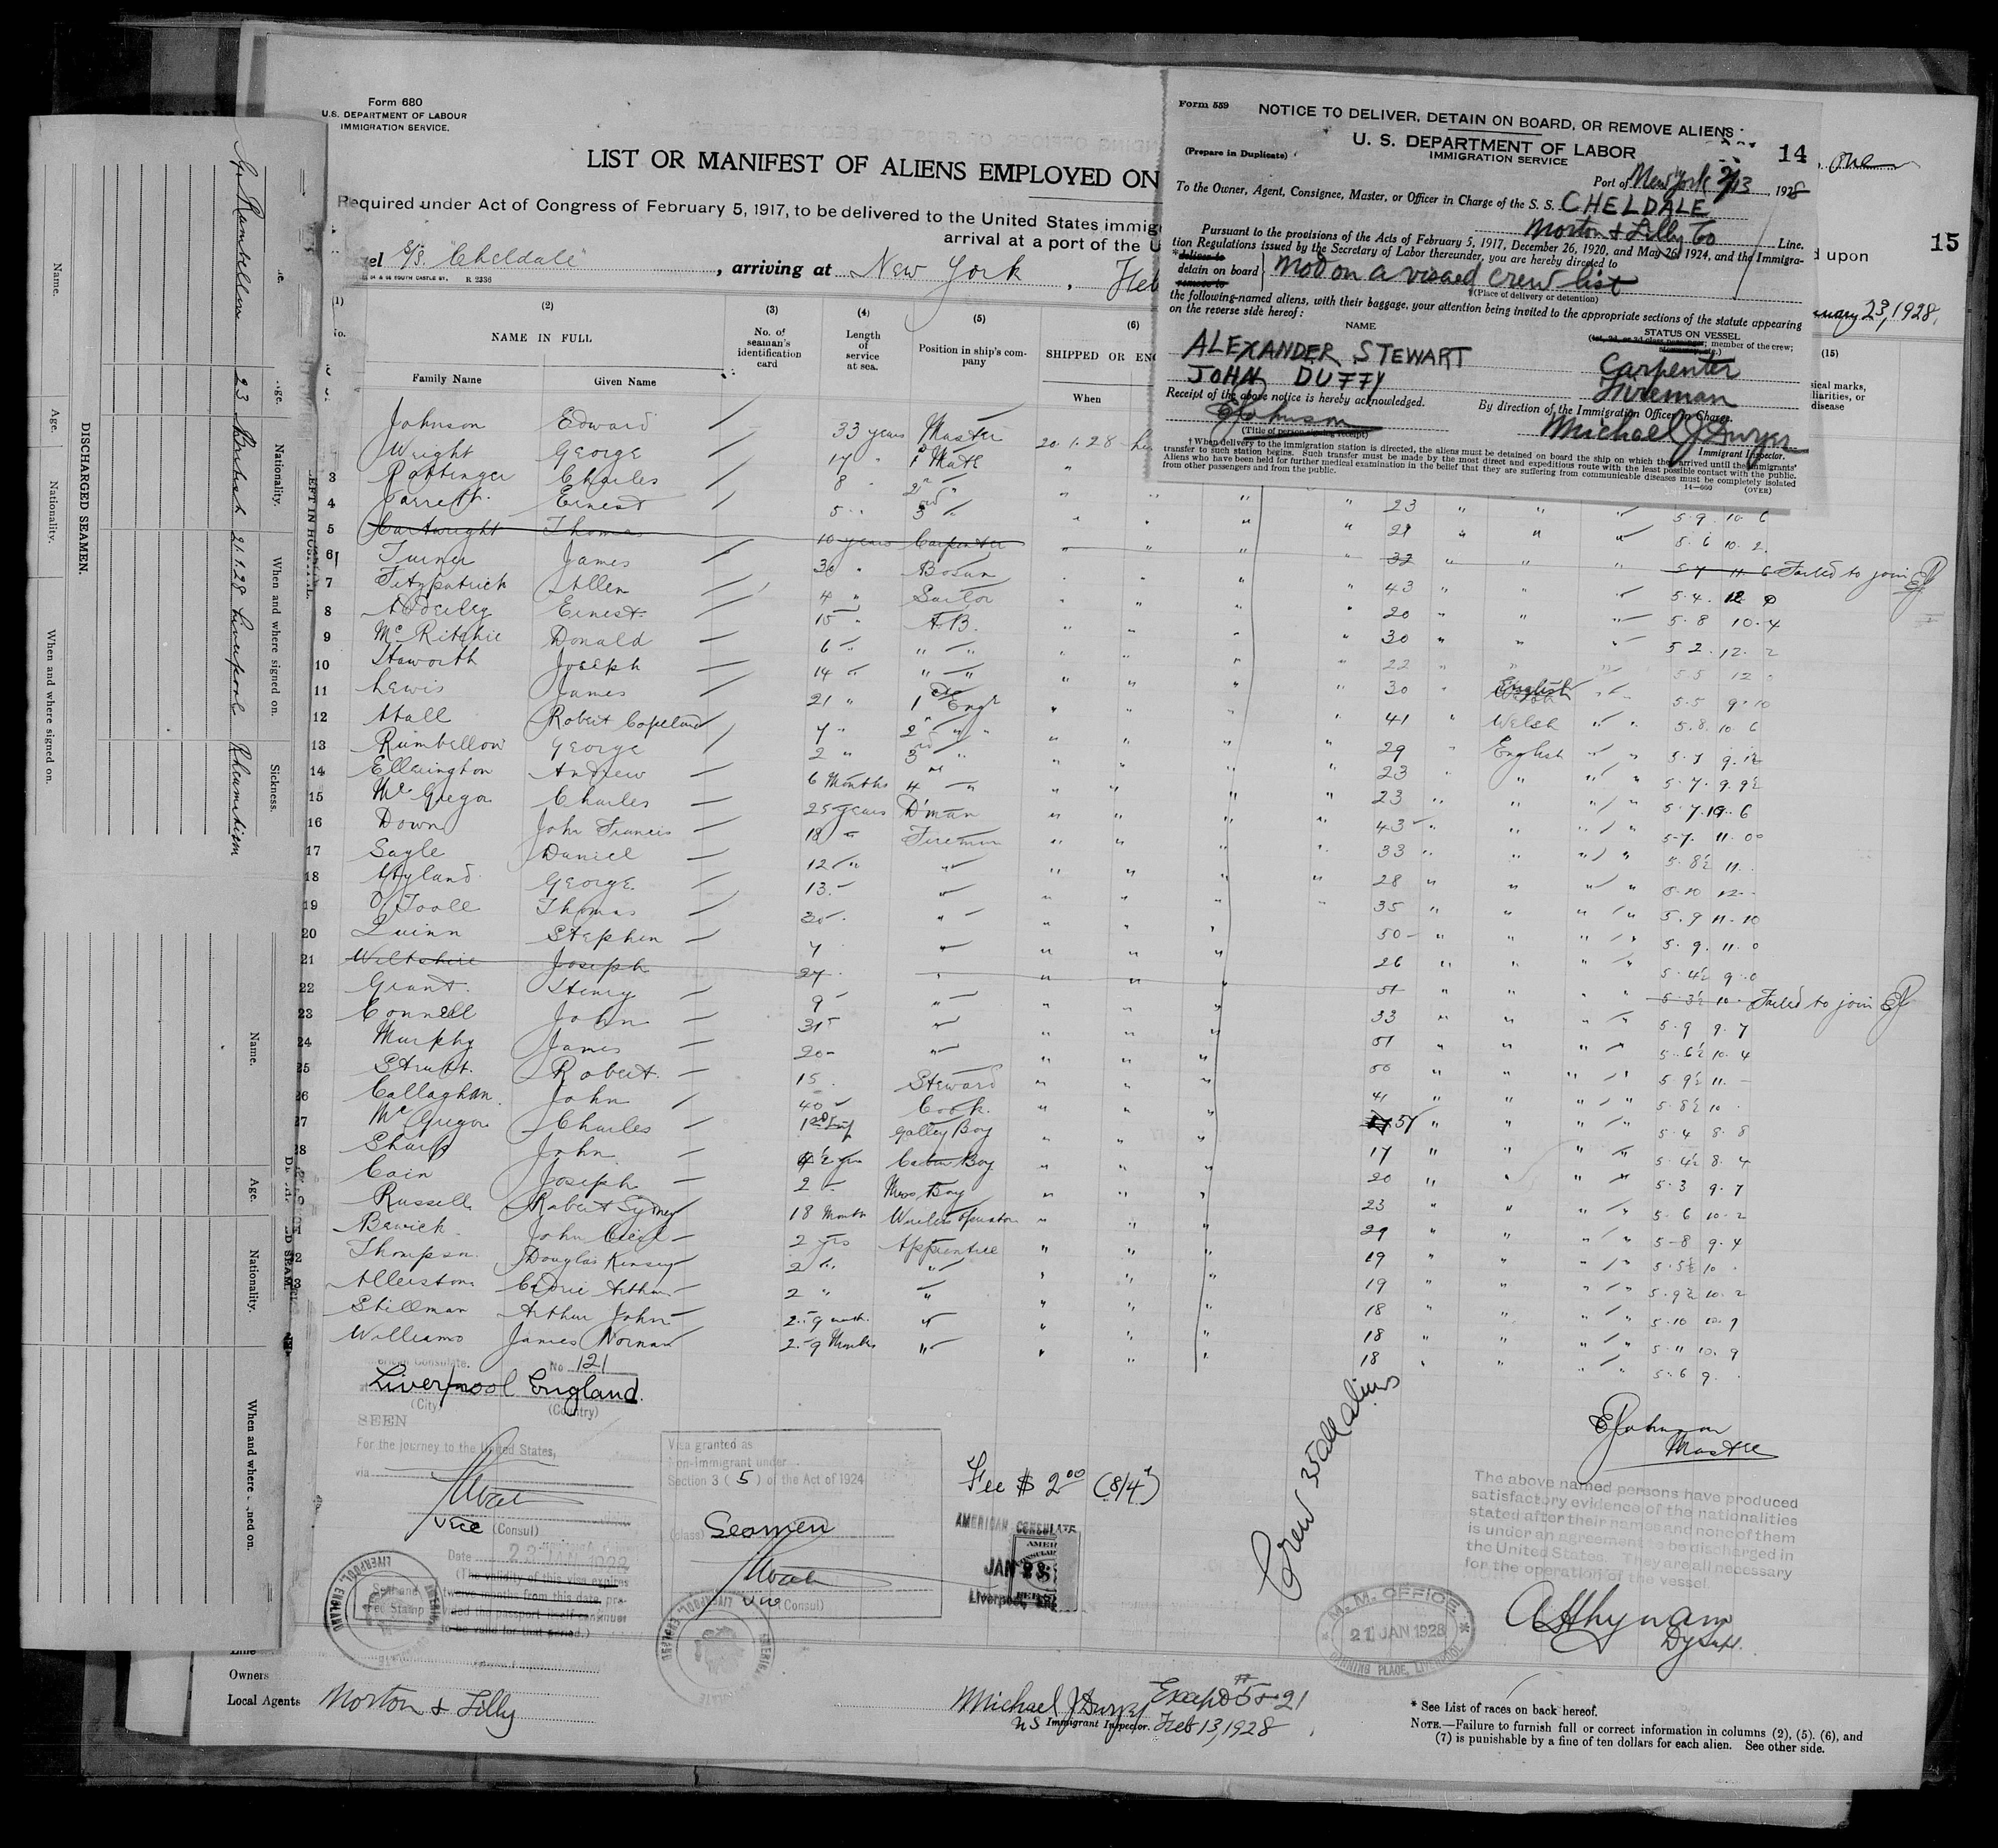 Form 680
U.S. DEPARTMENT OF LABOUR
IMMIGRATION SERVICE.
LIST OR MANIFEST OF ALIENS EMPLOYED ON
Required under Act of Congress of February 5, 1917, to be delivered to the United States immig
arrival at a port of the U
S/S. "Cheldale", arriving at New York, Feb
R 2336
Form 559
NOTICE TO DELIVER, DETAIN ON BOARD, OR REMOVE ALIENS
U. S. DEPARTMENT OF LABOR
IMMIGRATION SERVICE
(Prepare in Duplicate)
14
Port of New York 2/13, 1928
To the Owner, Agent, Consignee, Master, or Officer in Charge of the S. S. CHELDALE
Morton & Lilly Co Line.
Pursuant to the provisions of the Acts of February 5, 1917, December 26, 1920, and May 26, 1924, and the Immigra-
tion Regulations issued by the Secretary of Labor thereunder, you are hereby directed to
*deliver to
detain on board
remove to
not on a visaed crew list
(Place of delivery or detention)
the following-named aliens, with their baggage, your attention being invited to the appropriate sections of the statute appearing
on the reverse side hereof:
NAME
STATUS ON VESSEL
member of the crew;
ALEXANDER STEWART Carpenter
JOHN DUFFY Fireman
Receipt of the above notice is hereby acknowledged.
By direction of the Immigration Officer in Charge.
EJohnson
(Title of person signing receipt)
Michael J Dwyer
Immigrant Inspector.
†When delivery to the immigration station is directed, the aliens must be detained on board the ship on which they arrived until the immigrants'
transfer to such station begins. Such transfer must be made by the most direct and expeditious route with the least possible contact with the public.
Aliens who have been held for further medical examination in the belief that they are suffering from communicable diseases must be completely isolated
from other passengers and from the public.
14—660
(OVER)
one
15
d upon
uary 23, 1928.
(15)
sical marks,
liarities, or
disease
(1) (2) (3) (4) (5) (6)
NAME IN FULL
Family Name Given Name
No. of seaman's identification card
Length of service at sea.
Position in ship's company
SHIPPED OR ENG
When
Johnson Edward 33 years Master 20.1.28
Wright George 17 " 1st Mate
3 Pottinger Charles 8 " 2nd " 23
4 Garrett Ernest 5 " 3rd " 5.9 10.6
5 Cartwright Thomas 10 years Carpenter 5.6 10.2
6 Turner James 30 " Bosun Failed to join EJ
7 Fitzpatrick Allen 4 " Sailor 43 5.4
8 Adderley Ernest 15 " A.B. 20 5.8 10.4
9 McRitchie Donald 6 " " 30 5 2.12.2
10 Haworth Joseph 14 " " 22 5 5 12
11 Lewis James 21 " 1st Engr 30 English 5.5 9.10
12 Hall Robert Copeland 7 " 2nd " 41 Welsh 5.8 10 6
13 Rumbellow George 2 " 3rd " 29 English 5.7 9.12
14 Ellerington Andrew 6 Months 4 " 23 5.7.9.9½
15 McGregor Charles 25 years D'man 23 5.7.10.6
16 Down John Francis 18 " Fireman 43 5.7. 11.00
17 Sayle Daniel 12 " " 33 5.8½ 11.
18 Hyland George 13 " 28 5.10 12
19 O'Toole Thomas 30 " 35 5.9 11.10
20 Quinn Stephen 7 " 50 5.9.11.0
21 Wiltshire Joseph 27 " 26 5.4½ 9.0
22 Grant Henry 9 " 51 5 3½ 10 Failed to join EJ
23 Connell John 31 " 33 5.9 9.7
24 Murphy James 20 " 51 5.6½ 10.4
25 Strutt Robert 15 Steward 50 5 9½ 11.
26 Callaghan John 40 Cook 41 5.8½ 10
27 McGregor Charles Galley Boy 57 5.4 8.8
28 Sharp John Cabin Boy 17 5.4½ 8.4
Cain Joseph 2 Mess Boy 20 5.3 9.7
Russell Robert Sydney 18 Months Wireless Operator 23 5.6 10.2
Bewick John Cecil 2 yrs Apprentice 29 5-8 9.4
Thompson Douglas Kinsey 2 " " 19 5.5½ 10
Allerston Cedric Arthur 2 " " 19 5.9½ 10.2
Stillman Arthur John 2.-9 month. " 18 5.10 10.9
Williams James Norman 2.-9 Months " 18 5.11 10.9
18 5.6 9.
American Consulate. No. 121
Liverpool England.
(City) (Country)
SEEN
For the journey to the United States,
via
Vice (Consul)
Date 23 JAN 1928
(The validity of this visa expires
twelve months from this date, pro-
vided the passport itself continues
to be valid for that period.)
Seal and
Fee Stamp
Visa granted as
non-immigrant under
Section 3 (5) of the Act of 1924
(class) Seamen
Vice (Consul)
Fee $ 2.00 (8/4d)
AMERICAN CONSULATE
JAN 23
Liverpool, ENG
Crew 35 all aliens
EJohnson
Master
The above named persons have produced
satisfactory evidence of the nationalities
stated after their names and none of them
is under an agreement to be discharged in
the United States. They are all necessary
for the operation of the vessel
Dy Supt.
M. M. OFFICE
21 JAN 1928
CANNING PLACE, LIVERPOOL
Line
Owners
Local Agents Morton & Lilly
Michael J Dwyer Except #5 & 21
US Immigrant Inspector. Feb 13, 1928
* See List of races on back hereof.
NOTE.—Failure to furnish full or correct information in columns (2), (5). (6), and
(7) is punishable by a fine of ten dollars for each alien. See other side.
DISCHARGED SEAMEN.
Name. Age. Nationality. When and where signed on.
LEFT IN HOSPITAL.
Age. Nationality. When and where signed on. Sickness.
Rumbellow 23 British 21.1.28 Liverpool Rheumatism
Name. Age. Nationality. When and where signed on.